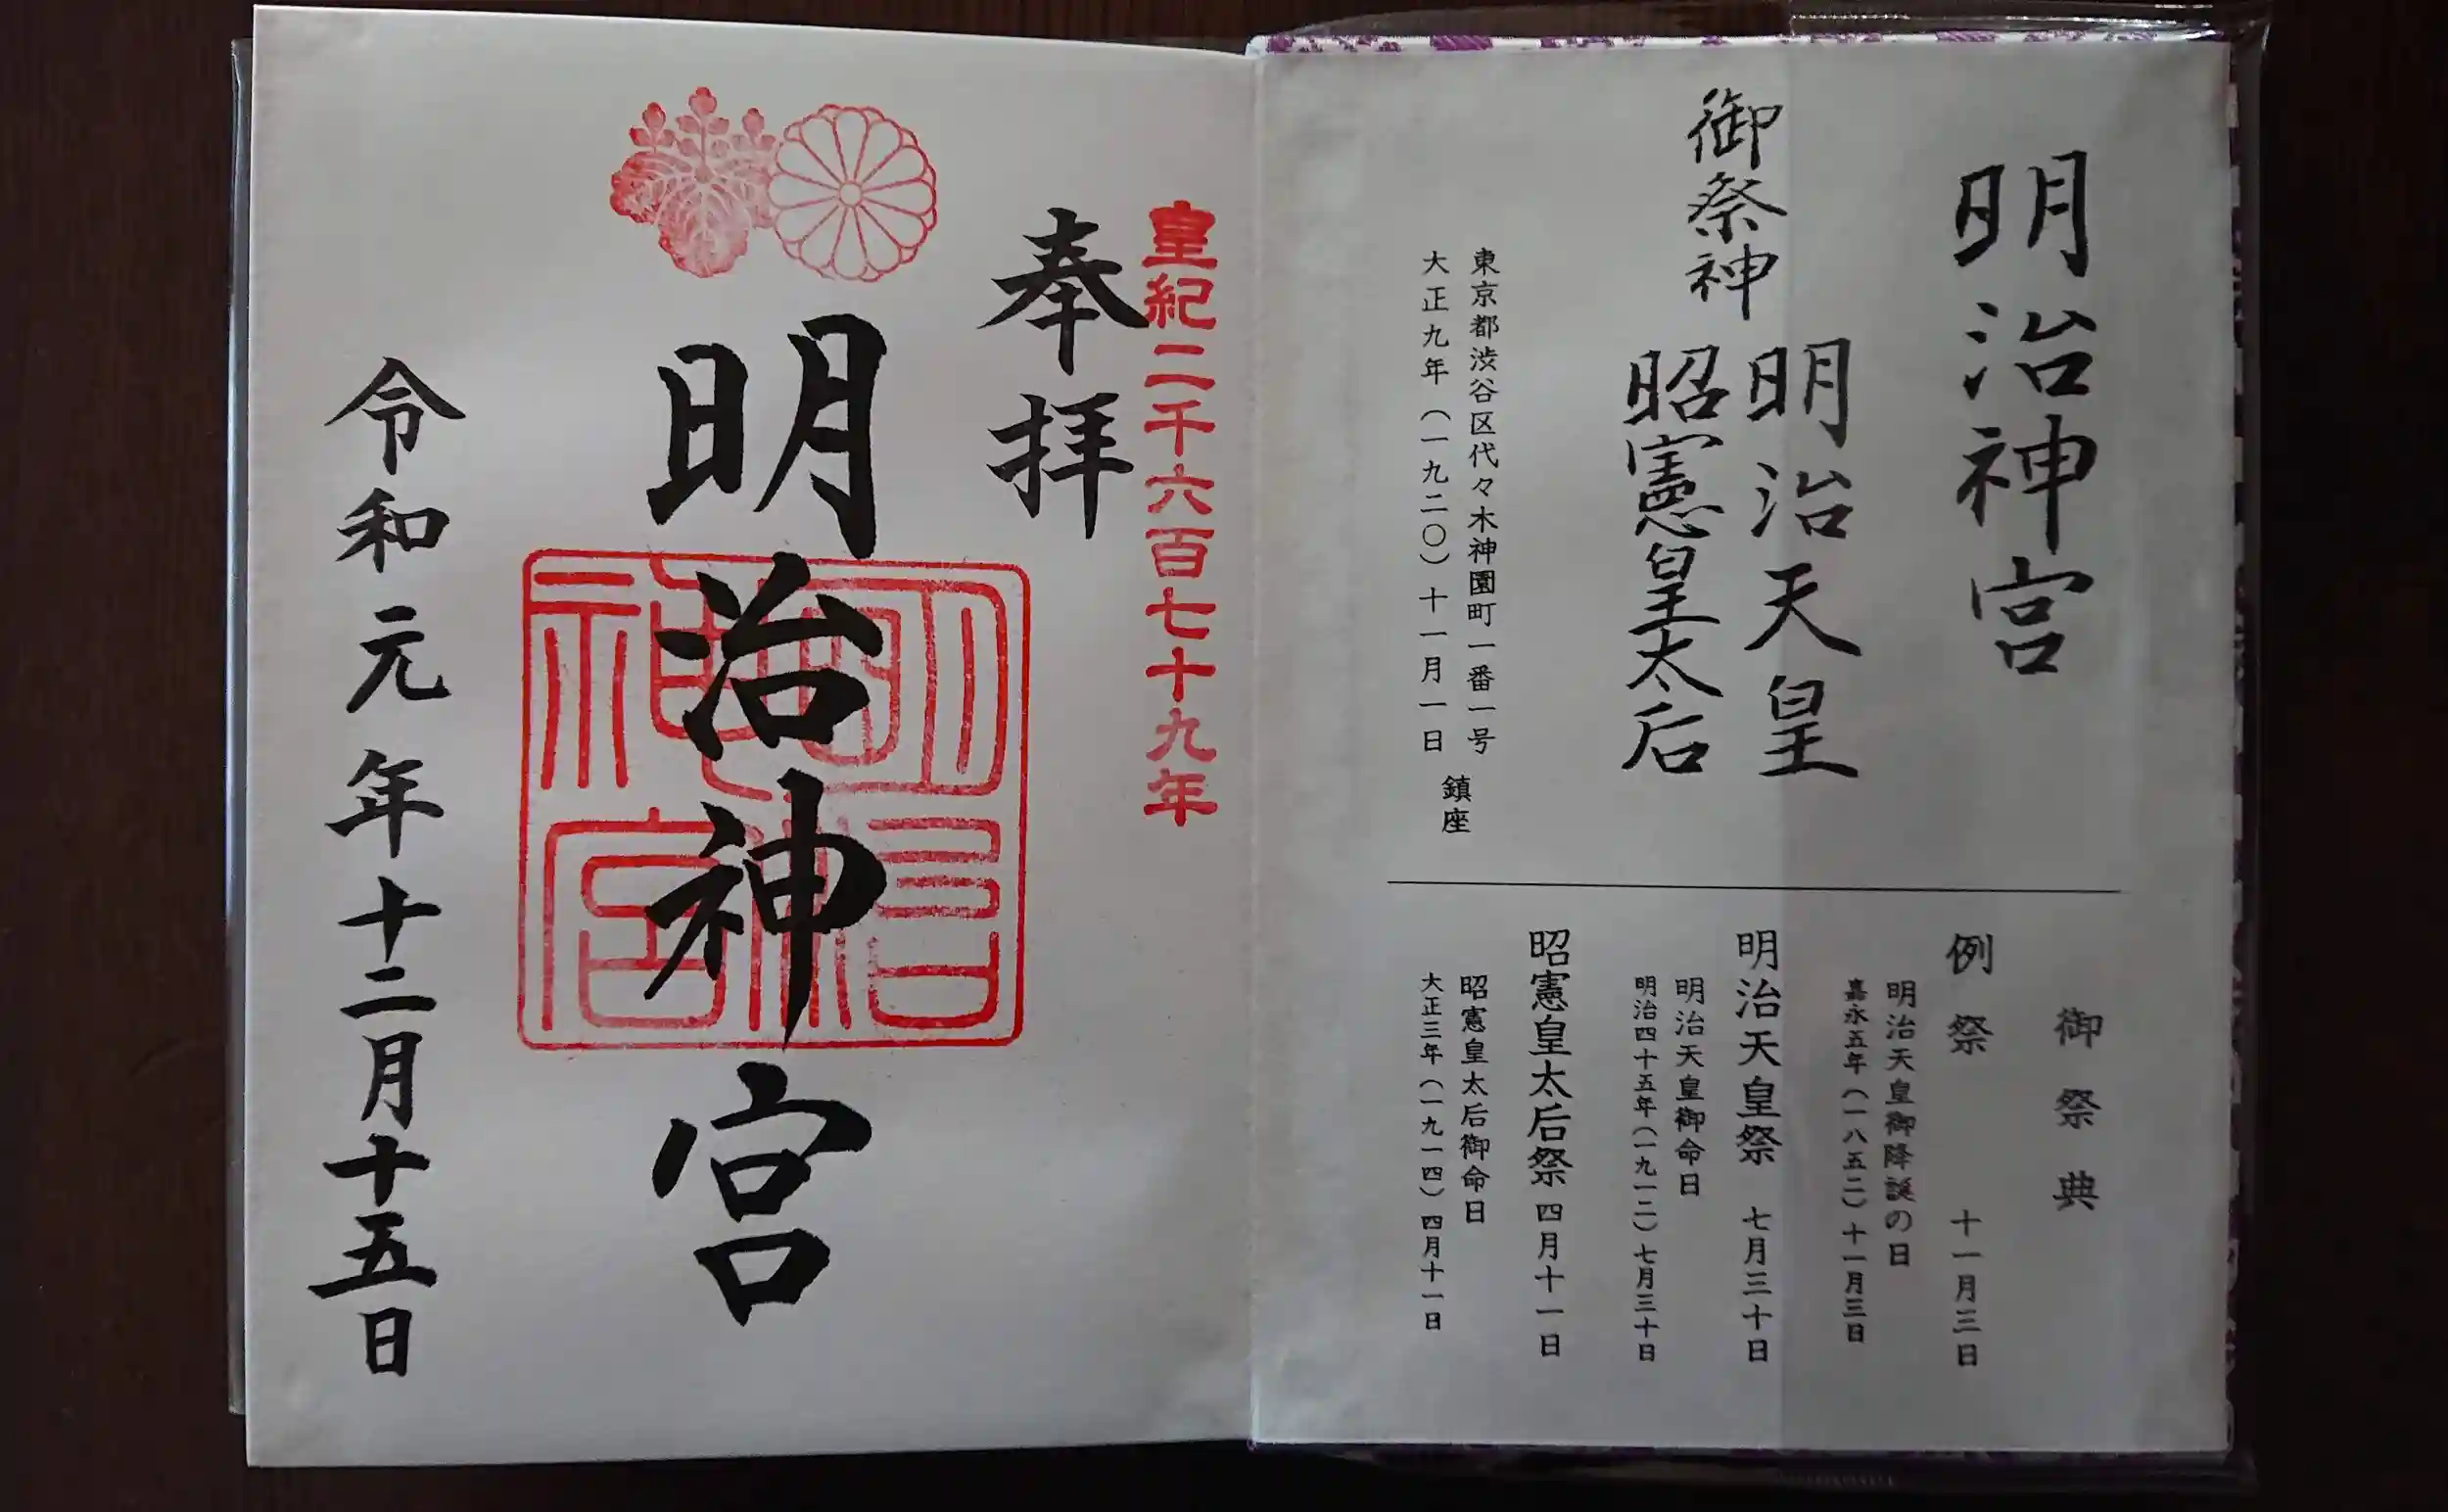 明治神宮
御祭神
明治天皇
昭憲皇太后
東京都渋谷区代々木神園町一番一号
大正九年（一九二〇）十一月一日
鎮座
御祭典
例祭 十一月三日
明治天皇御降誕の日
嘉永五年（一八五二）十一月三日
明治天皇祭 七月三十日
明治天皇御命日
明治四十五年（一九一二）七月三十日
昭憲皇太后祭 四月十一日
昭憲皇太后御命日
大正三年（一九一四）四月十一日
皇紀二千六百七十九年
奉拝
明治神宮
明治神宮
令和元年十二月十五日